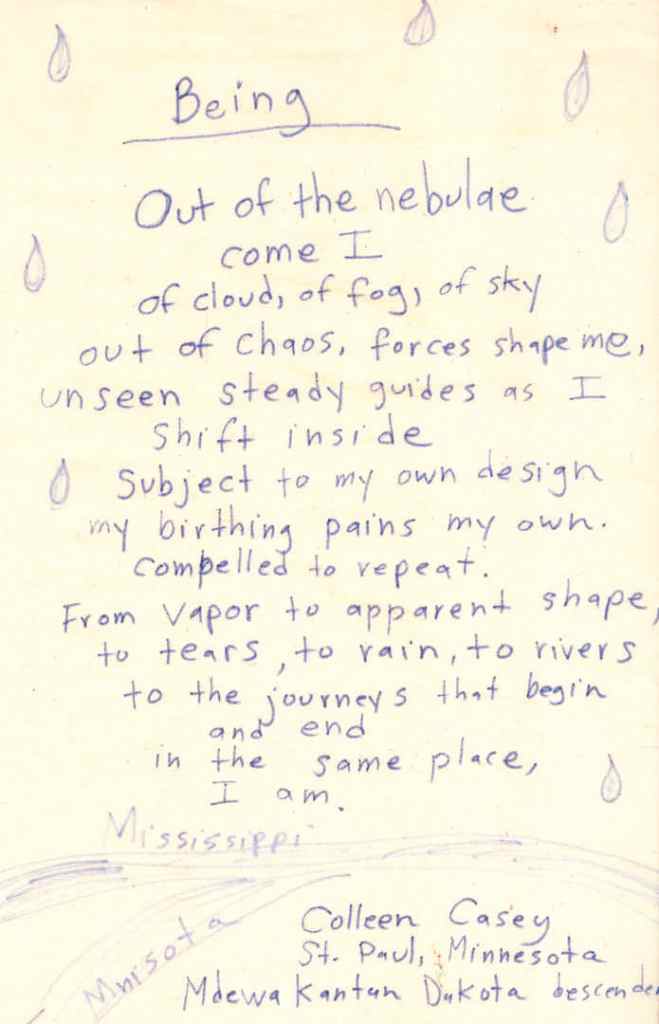 Being
Out of the nebulae
come I
of cloud, of fog, of sky
out of chaos, forces shape me,
unseen steady guides as I
shift inside
Subject to my own design
my birthing pains my own.
compelled to repeat.
From vapor to apparent shape,
to tears, to rain, to rivers
to the journeys that begin
and end
in the same place,
I am.
Mississippi
Mnisota
Colleen Casey
St. Paul, Minnesota
Mdewakantan Dakota descende